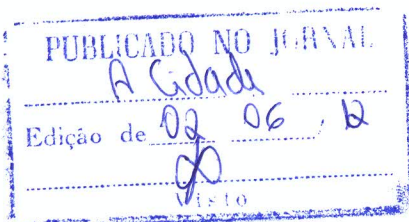 PUBLICADO NO JORNAL
A Cidade
Edição de 02 06 12
Visto